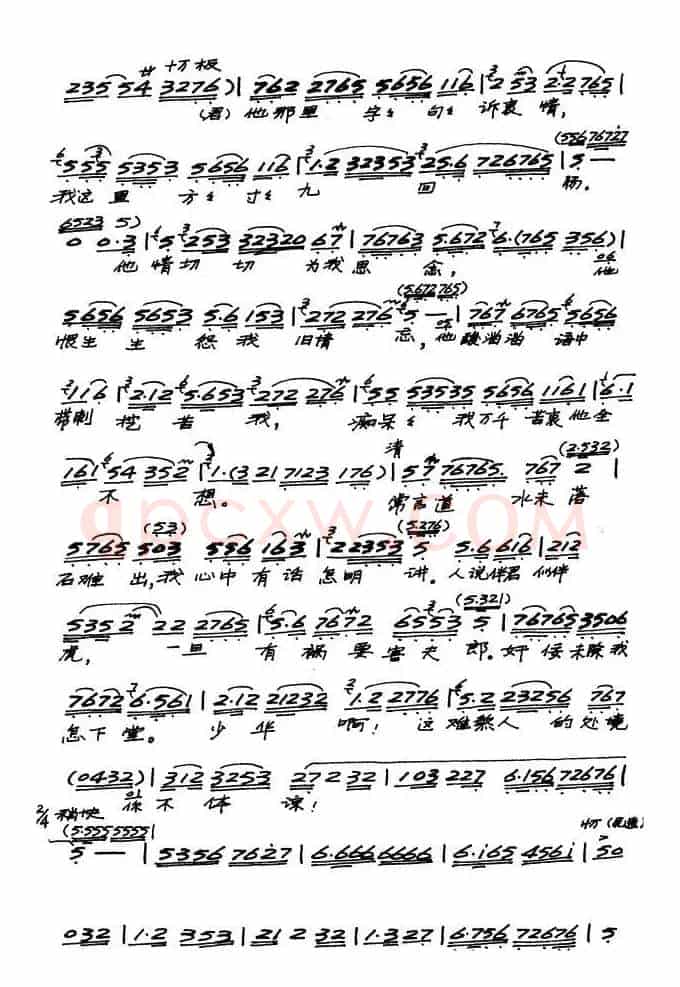 十板
235 54 3276) | 762 2765 5656 116 | 2 53 2·2765 |
(君)他那里 字字 句句 诉衷情,
(5567627
555 5353 5656 116 | 1·2 32353 25·6 726765 | 5 —
我这里 方寸 九 回 肠。
6523 5)
0 0·3 | 5 253 32320 67 | 76763 5·672 6·(765 356) |
他 情切 切 为我思 念, 他
(5672765)
5656 5653 5·6 153 | 272 276 5 — | 767 6765 5656
恨生 生 怨我 旧情 忘,他酸溜溜 语中
116 | 2·12 5·653 272 276 | 55 53535 5656 1161 | 6·1
带刺 挖苦 我, 痴呆呆 我万千 苦衷他全
清 (2·532)
161 54 352 | 1·(3 21 7123 176) | 57 76765 767 2 |
不 想。 常言道 水未落
qpcxw.COM
(53) (5·276)
5765 503 556 163 | 22353 5 5·6 616 | 212
石难 出,我心中有话怎明 讲。人说伴君似伴
(5·321)
535 2 22 2765 | 5·6 7672 6553 5 | 767653506
虎, 一旦 有祸要害夫 郎。奸佞未除我
7672 6·561 | 2·12 21232 1·2 2776 | 5·2 23256 767
怎下堂。 少华 啊! 这难熬人 的处境
(0432) | 312 3253 272 32 | 103 227 6·156 72676 |
你不体 谅!
2/4 稍快
(5·555 5555 |
5 — | 5356 7627 | 6·666 6666 | 6·165 4561 | 50
032 | 1·2 353 | 21 2 32 | 1·327 | 6·756 72676 | 5